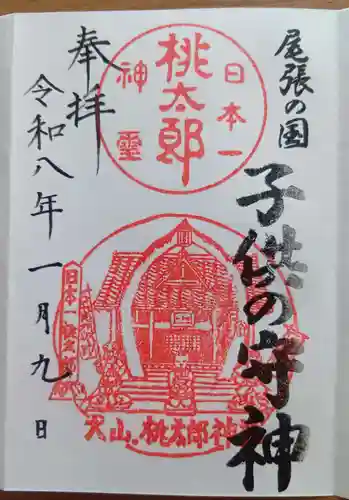 尾張の国
子供の守神
日本一
桃太郎
神霊
奉拝
令和八年一月九日
日本一
犬山・桃太郎神社